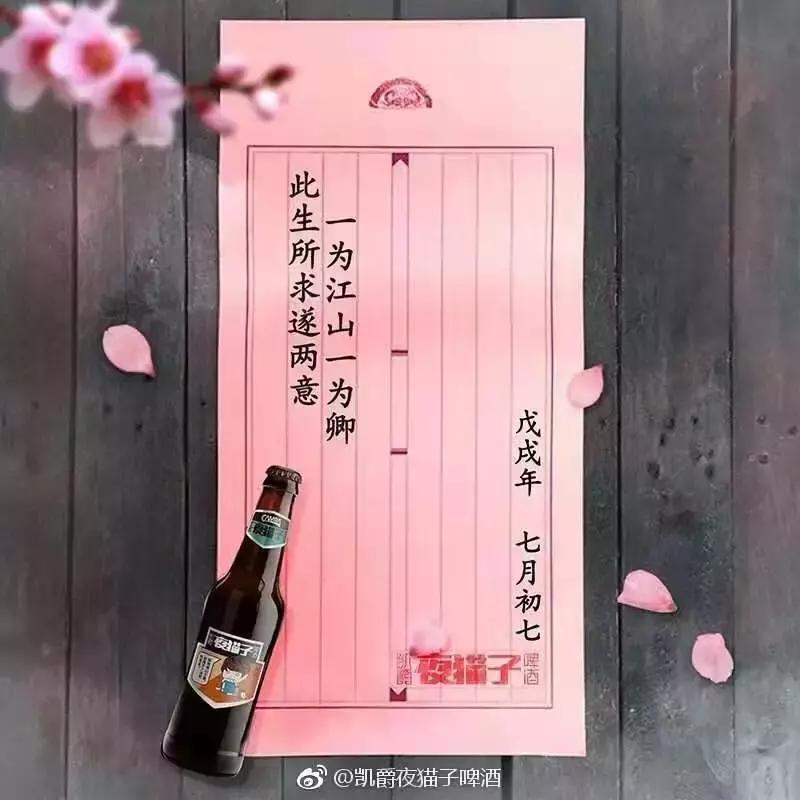 此生所求遂两意
一为江山一为卿
戊戌年 七月初七
凯爵 夜猫子 啤酒
夜猫子
@凯爵夜猫子啤酒